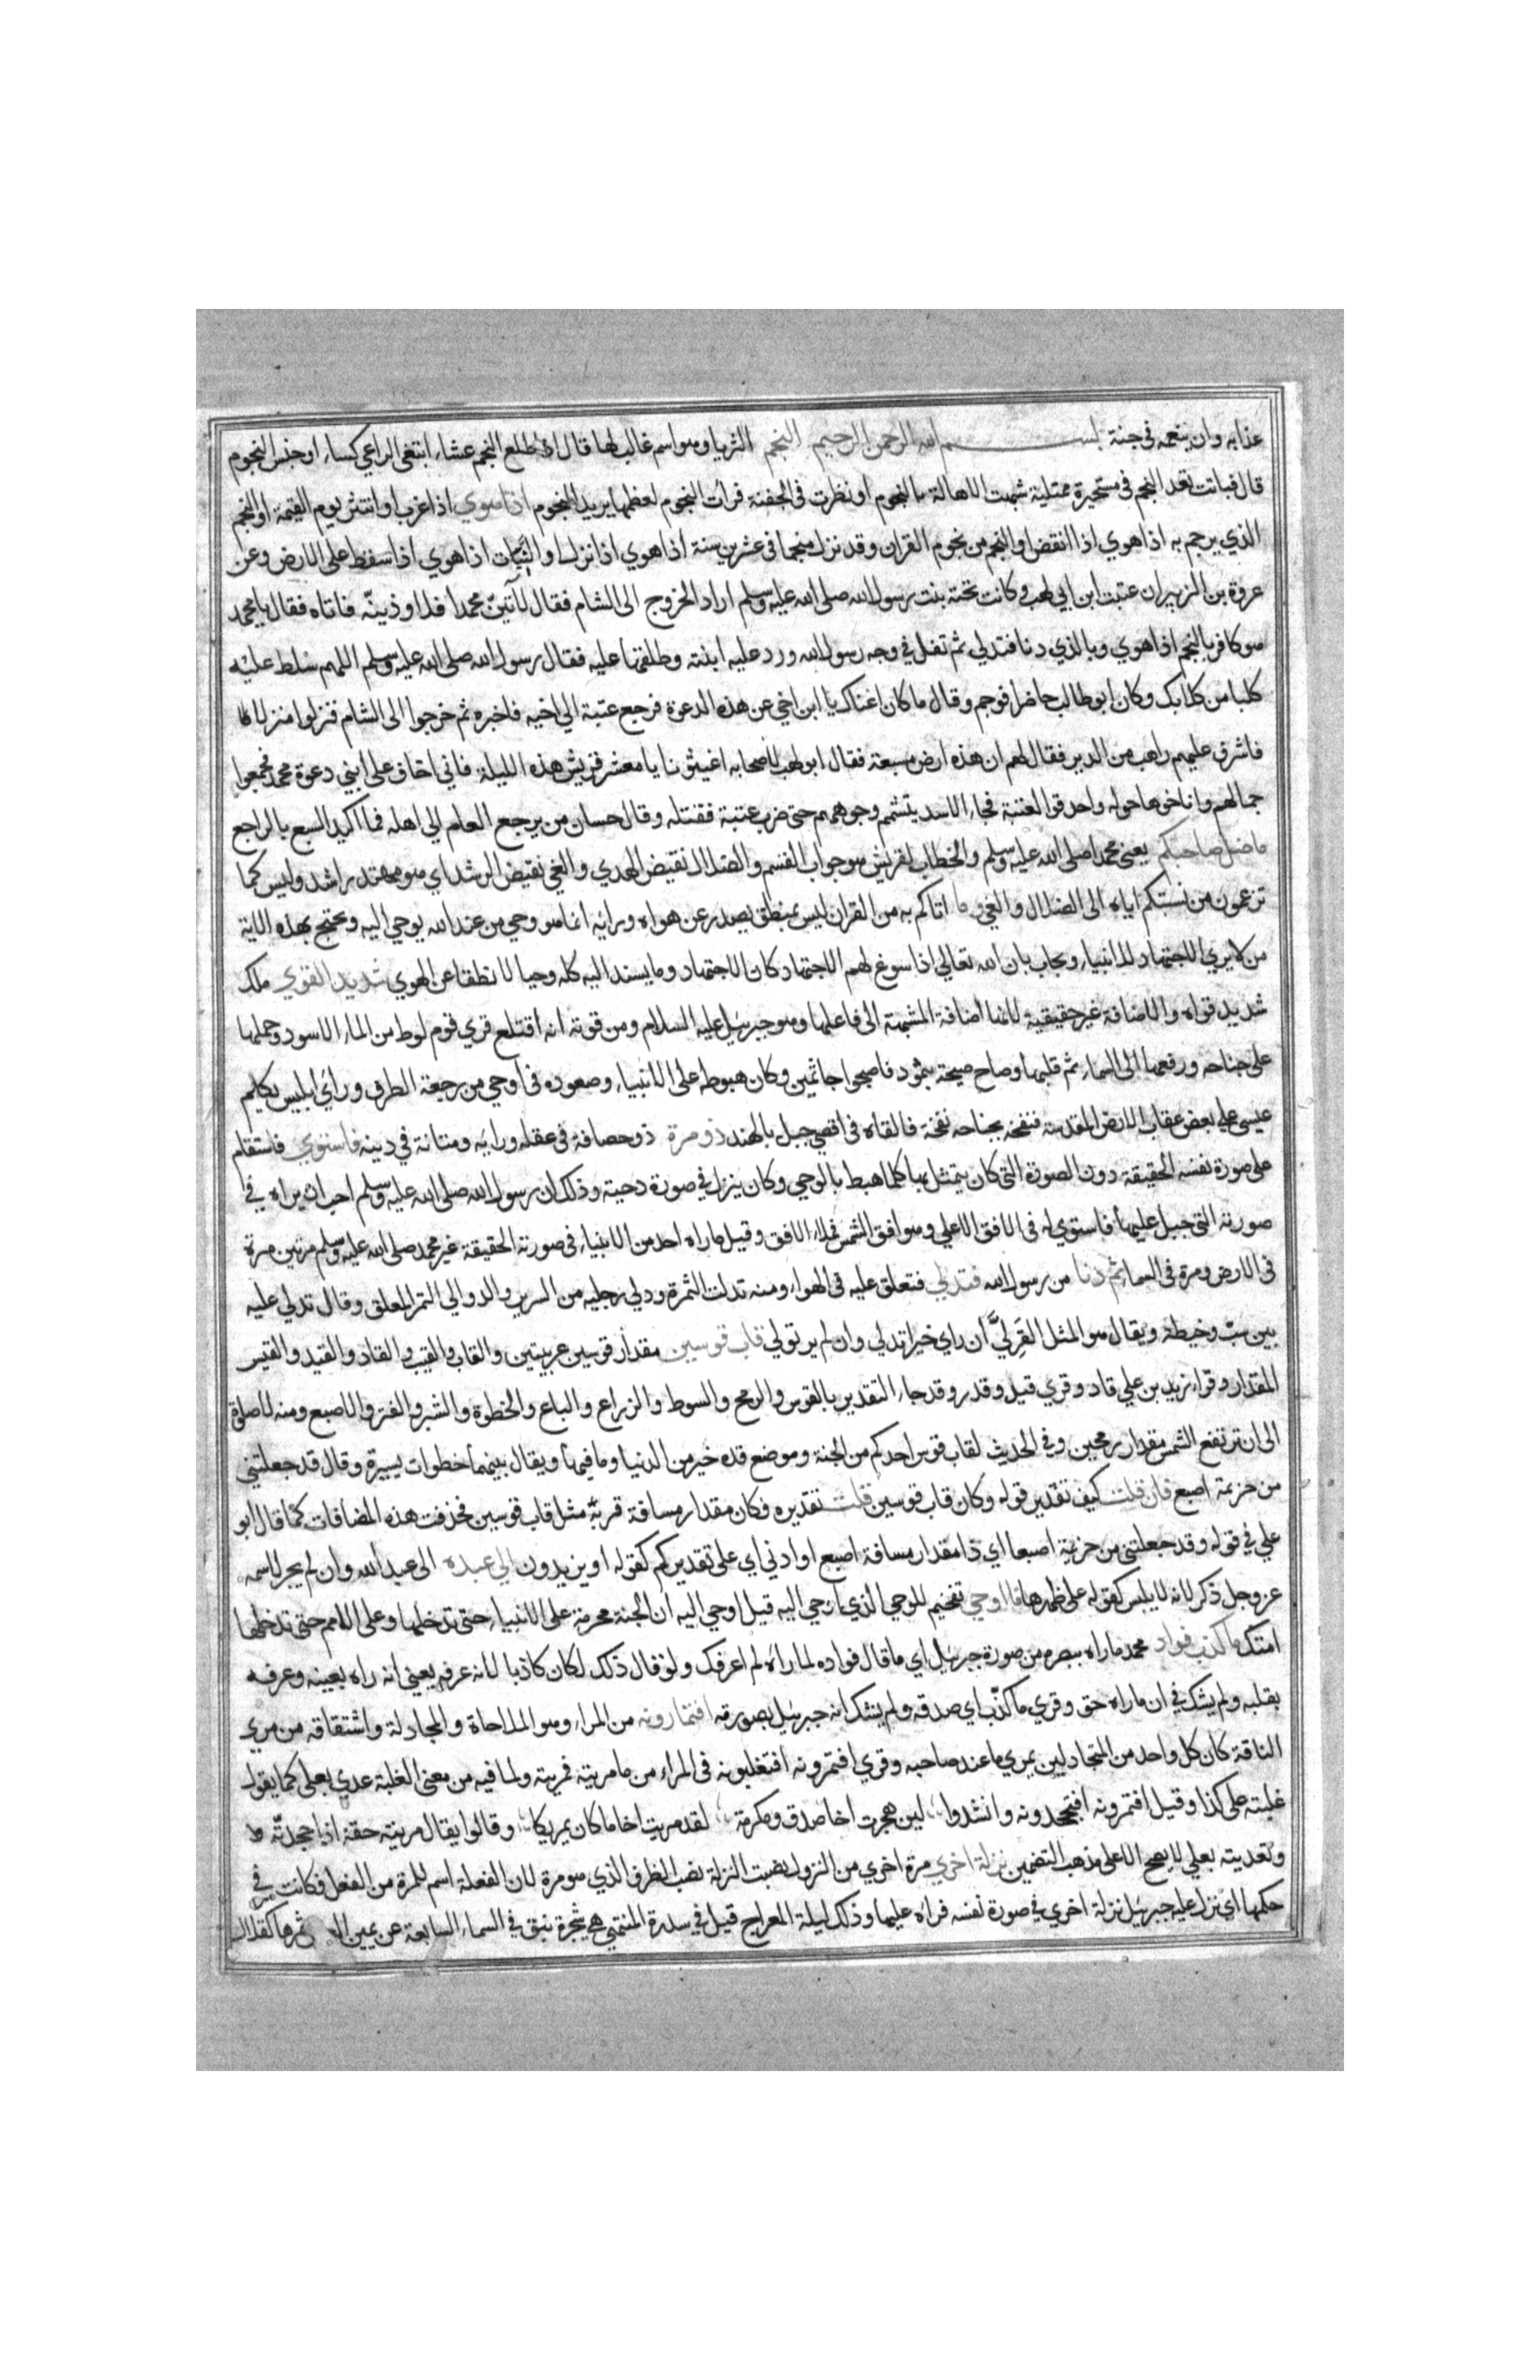 عذابه وان ينعمه في جنة بســـم الله الرحمن الرحيم النجم الثريا وهو اسم غالب لها قال اذا طلع النجم عشاء ابتغي الراعي كساء او جنس النجوم
قال فباتت تعد النجم في مستحيرة ممتلية شبهت الاهالة بالنجوم او نظرت في الجفنة فرات النجوم لعظمها يريد النجوم اذا هوي اذا غرب او انتثر يوم القيمة او النجم
الذي يرجم به اذا هوي اذا انقض او النجم من نجوم القران وقد نزل منجما في عشرين سنة اذا هوي اذا نزل او النبات اذا هوي اذا سقط على الارض وعن
عروة بن الزبير ان عتبت ابن ابي لهب وكانت تحته بنت رسول الله صلى الله عليه وسلم اراد الخروج الى الشام فقال لآتين محمدا فلا وذينّه فاتاه فقال يا محمد
هو كافر بالنجم اذا هوي وبالذي دنا فتدلي ثم تفل في وجه رسول الله ورد عليه ابنته وطلقها عليه فقال رسول الله صلى الله عليه وسلم اللهم سلط عليه
كلبا من كلابك وكان ابو طالب حاضرا فوجم وقال ما كان اغناك يا ابن اخي عن هذه الدعوة فرجع عتبة الي اخيه فاخبره ثم خرجوا الى الشام فنزلوا منزلا
فاشرف عليهم راهب من الدير فقال لهم ان هذه ارض مسبعة فقال ابو لهب لاصحابه اغيثونا يا معشر قريش هذه الليلة فاني اخاف على ابني دعوة محمد فجمعوا
جمالهم واناخوها حوله واحدقوا لعتبة فجاء الاسد يتشمم وجوههم حتى ضرب عتبة فقتله وقال حسان من يرجع العام الى اهله فما اكيد السبع بالراجع
ما ضل صاحبكم يعني محمدا صلى الله عليه وسلم والخطاب لقريش هو جواب القسم والضلال نقيض الهدي والغي نقيض الرشد اي هو مهتد راشد وليس كما
تزعمون من نسبتكم اياه الى الضلال والغي وما اتاكم به من القران ليس بمنطق يصدر عن هواه ورايه انما هو وحي من عند الله يوحي اليه ويحتج بهذه الاية
من لا يري الاجتهاد للانبياء ويجاب بان الله تعالي اذا سوغ لهم الاجتهاد كان الاجتهاد وما يسند اليه كله وحيا لا نطقا عن الهوي شديد القوي ملك
شديد قواه والاضافة غير حقيقية لانها اضافة المشبهة الى فاعلها وهو جبرئيل عليه السلام ومن قوته انه اقتلع قري قوم لوط من الماء الاسود وحملها
على جناحه ورفعها الى السماء ثم قلبها وصاح صيحة بثمود فاصبحوا جاثمين وكان هبوطه على الانبياء وصعوده في اوحي من رجعة الطرف وراي ابليس يكلم
عيسى على بعض عقاب الارض المقدسة فنفخه بجناحه نفخة فالقاه في اقصي جبل بالهند ذو مرة ذو حصافة في عقله ورايه ومتانة في دينه فاستوي فاستقام
على صورة نفسه الحقيقة دون الصورة التي كان يتمثل بها كلما هبط بالوحي وكان ينزل في صورة دحية وذلك ان رسول الله صلى الله عليه وسلم احب ان يراه في
صورته التي جبل عليها فاستوي له في الافق الاعلي وهو افق الشمس فملاء الافق وقيل ما راه احد من الانبياء في صورته الحقيقة غير محمد صلى الله عليه وسلم مرتين مرة
في الارض ومرة في السماء ثم دنا من رسول الله فتدلي فتعلق عليه في الهواء ومنه تدلت الثمرة ودلي رجليه من السرير والدوالي الثمر المعلق وقال تدلي عليه
بين سبّ وخيطة ويقال هو المثل القرليّ ان راي خيرا تدلي وان لم ير تولي قاب قوسين مقدار قوسين عربيتين والقاب والقيب والقاد والقيد والقيس
المقدار وقراء زيد بن علي قاد وقري قيل وقدر وقد جاء التقدير بالقوس والرمح والسوط والزراع والباع والخطوة والشبر والفتر والاصبع ومنه لا صلوة
الى ان ترتفع الشمس مقدار رمحين وفي الحديث لقاب قوس احدكم من الجنة وموضع قده خير من الدنيا وما فيها ويقال بينهما خطوات يسيرة وقال قد جعلتني
من حزيمة اصبع فان قلت كيف تقدير قوله وكان قاب قوسين قلت تقديره فكان مقدار مسافة قربه مثل قاب قوسين فحذفت هذه المضافات كما قال ابو
علي في قوله وقد جعلتني من حزيمة اصبعا اي ذا مقدار مسافة اصبع او ادني اي على تقديركم كقوله او يزيدون الي عبده الى عبد الله وان لم يجر لاسمه
عز وجل ذكر لانه لا يلبس كقوله على ظهرها ما اوحي تفخيم للوحي الذي اوحي اليه قيل اوحي اليه ان الجنة محرمة على الانبياء حتى تدخلها وعلى الامم حتى تدخلها
امتك ما كذب فواد محمد ما راه ببصره من صورة جبرئيل اي ما قال فواده لما راه لم اعرفك ولو قال ذلك لكان كاذبا لانه عرفه يعني انه راه بعينه وعرفه
بقلبه ولم يشك في ان ما راه حق وقري ما كذّب اي صدقه ولم يشك انه جبرئيل بصورته افتمارونه من المراء وهو الملاحاة والمجادلة واشتقاقه من مري
الناقة كان كل واحد من المتجادلين يمري ما عند صاحبه وقري افتمرونه افتغلبونه في المراء من ماريته فمريته ولما فيه من معني الغلبة عدي بعلى كما يقول
غلبته على كذا وقيل افتمرونه افتجحدونه وانشدوا لين هجرت اخا صدق ومكرمة لقد مريت اخا ما كان يمريكا وقالوا يقال مريته حقه اذا جحدته
وتعديته بعلي لا يصح الا على مذهب التضمين نزلة اخري مرة اخري من النزول نصبت النزلة نصب الظرف الذي هو مرة لان الفعلة اسم للمرة من الفعل فكانت في
حكمها اي نزل عليه جبرئيل نزلة اخري في صورة نفسه فراه عليها وذلك ليلة المعراج قيل في سدرة المنتهي هي شجرة نبق في السماء السابعة عن يمين ثمرها كقلال